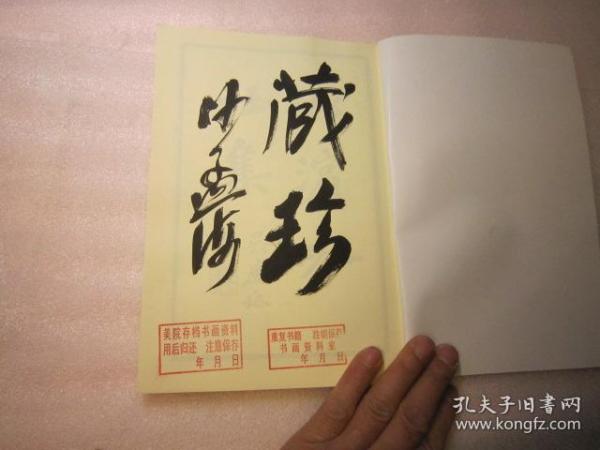 藏珍
沙孟海
美院存档书画资料
用后归还 注意保存
年 月 日
重复书籍
书画资料室
年 月 日
孔夫子旧书网
www.kongfz.com